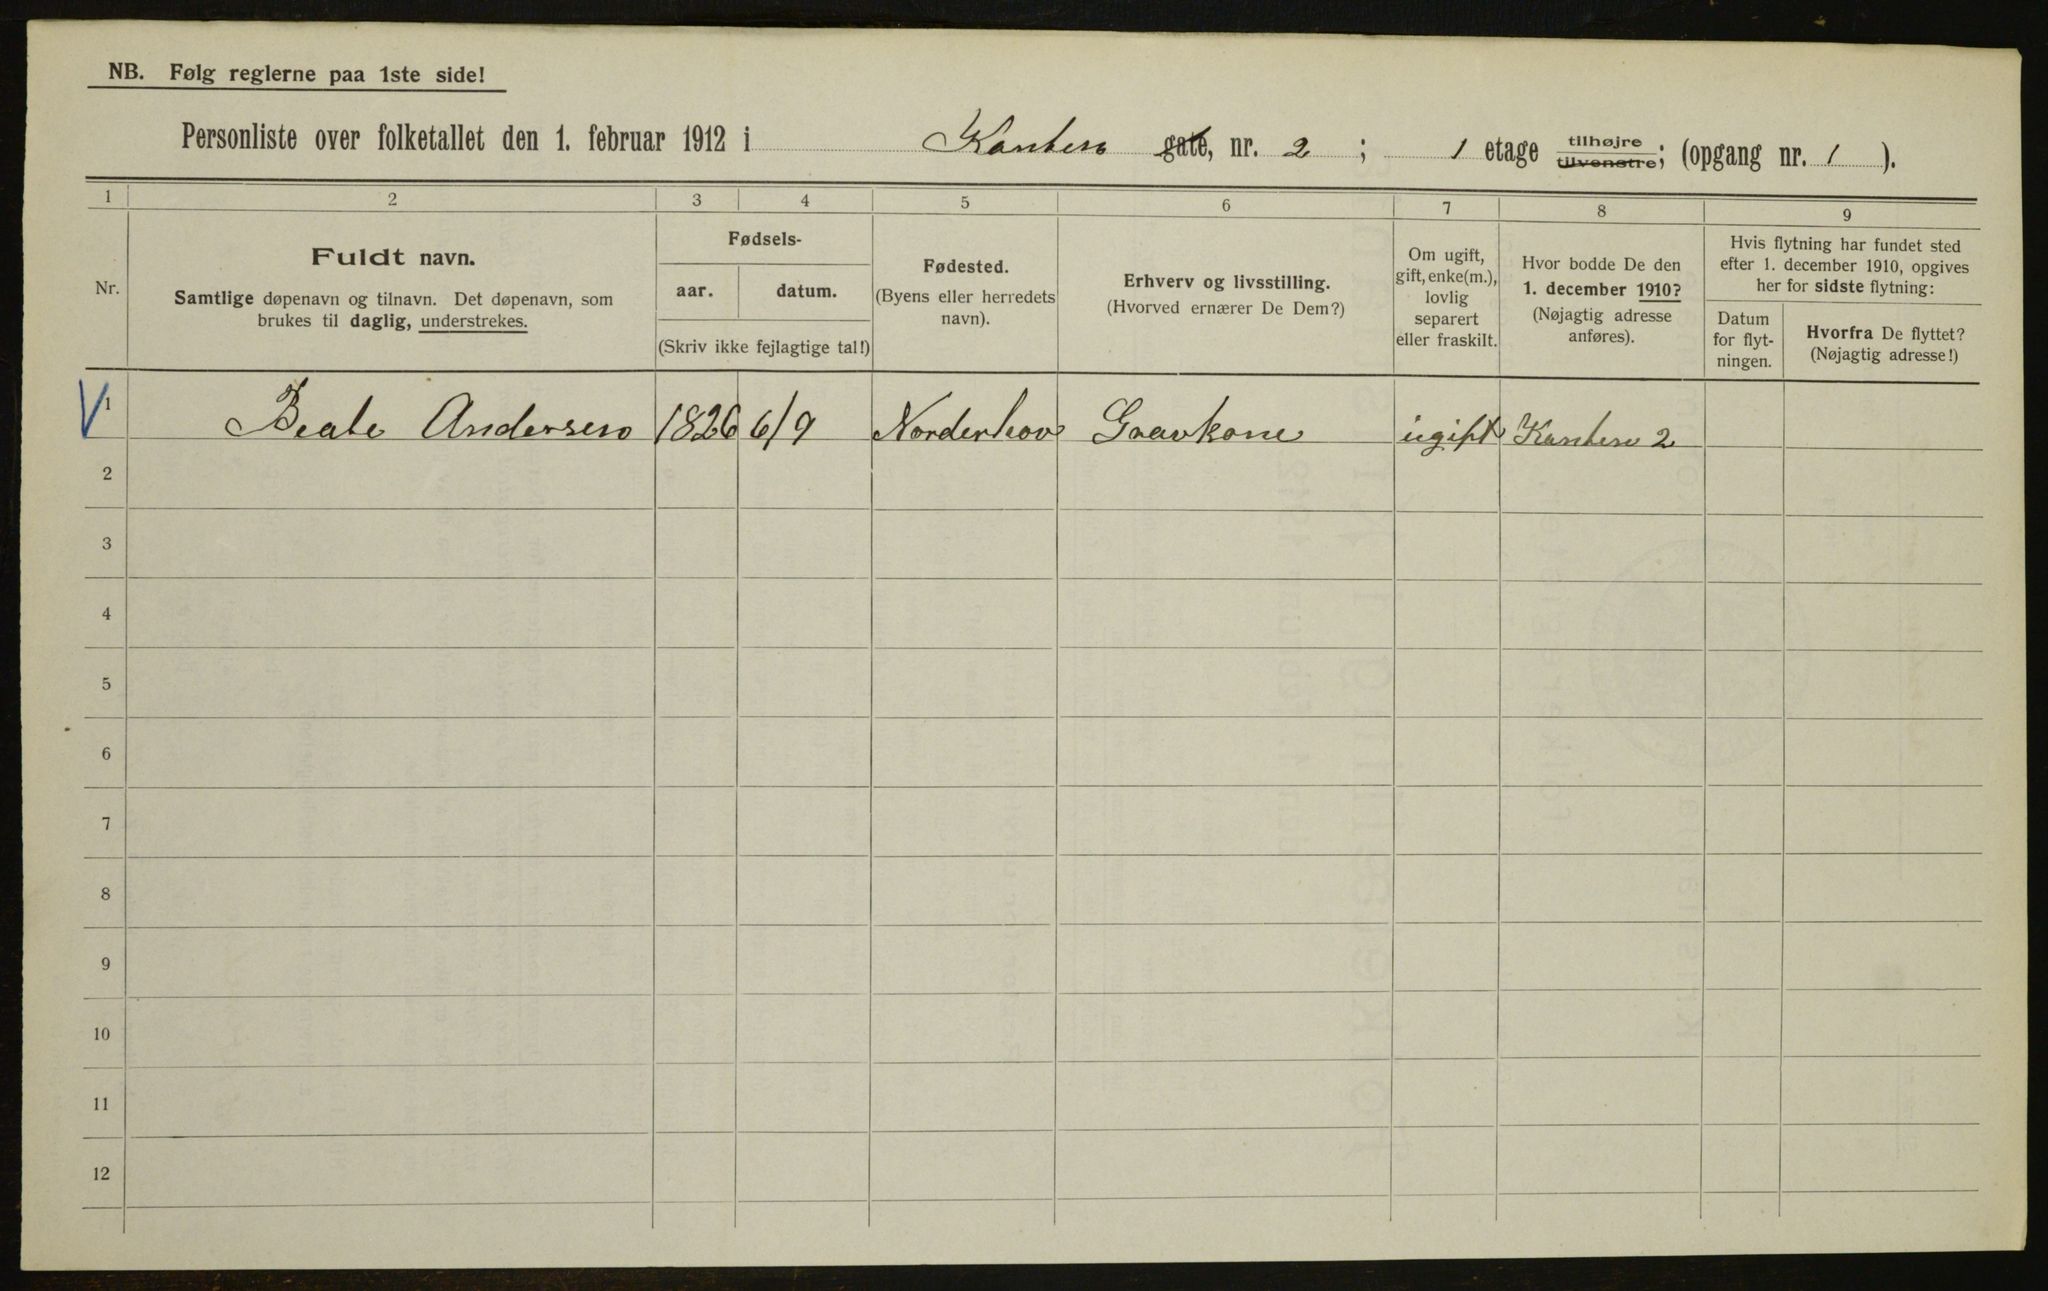 NB. Følg reglerne paa 1ste side!
Personliste over folketallet den 1. februar 1912 i Kanten gate, nr. 2 ; 1 etage tilhøjre tilvenstre; (opgang nr. 1 ).
1 2 3 4 5 6 7 8 9
Nr.
Fuldt navn.
Samtlige døpenavn og tilnavn. Det døpenavn, som
brukes til daglig, understrekes.
Fødsels-
aar. datum.
(Skriv ikke fejlagtige tal!)
Fødested.
(Byens eller herredets
navn).
Erhverv og livsstilling.
(Hvorved ernærer De Dem?)
Om ugift,
gift, enke(m.),
lovlig
separert
eller fraskilt.
Hvor bodde De den
1. december 1910?
(Nøjagtig adresse
anføres).
Hvis flytning har fundet sted
efter 1. december 1910, opgives
her for sidste flytning:
Datum
for flyt-
ningen.
Hvorfra De flyttet?
(Nøjagtig adresse!)
1 Beate Andersen 1826 6/9 Norderhov Gravkone ugift Kanten 2
2
3
4
5
6
7
8
9
10
11
12